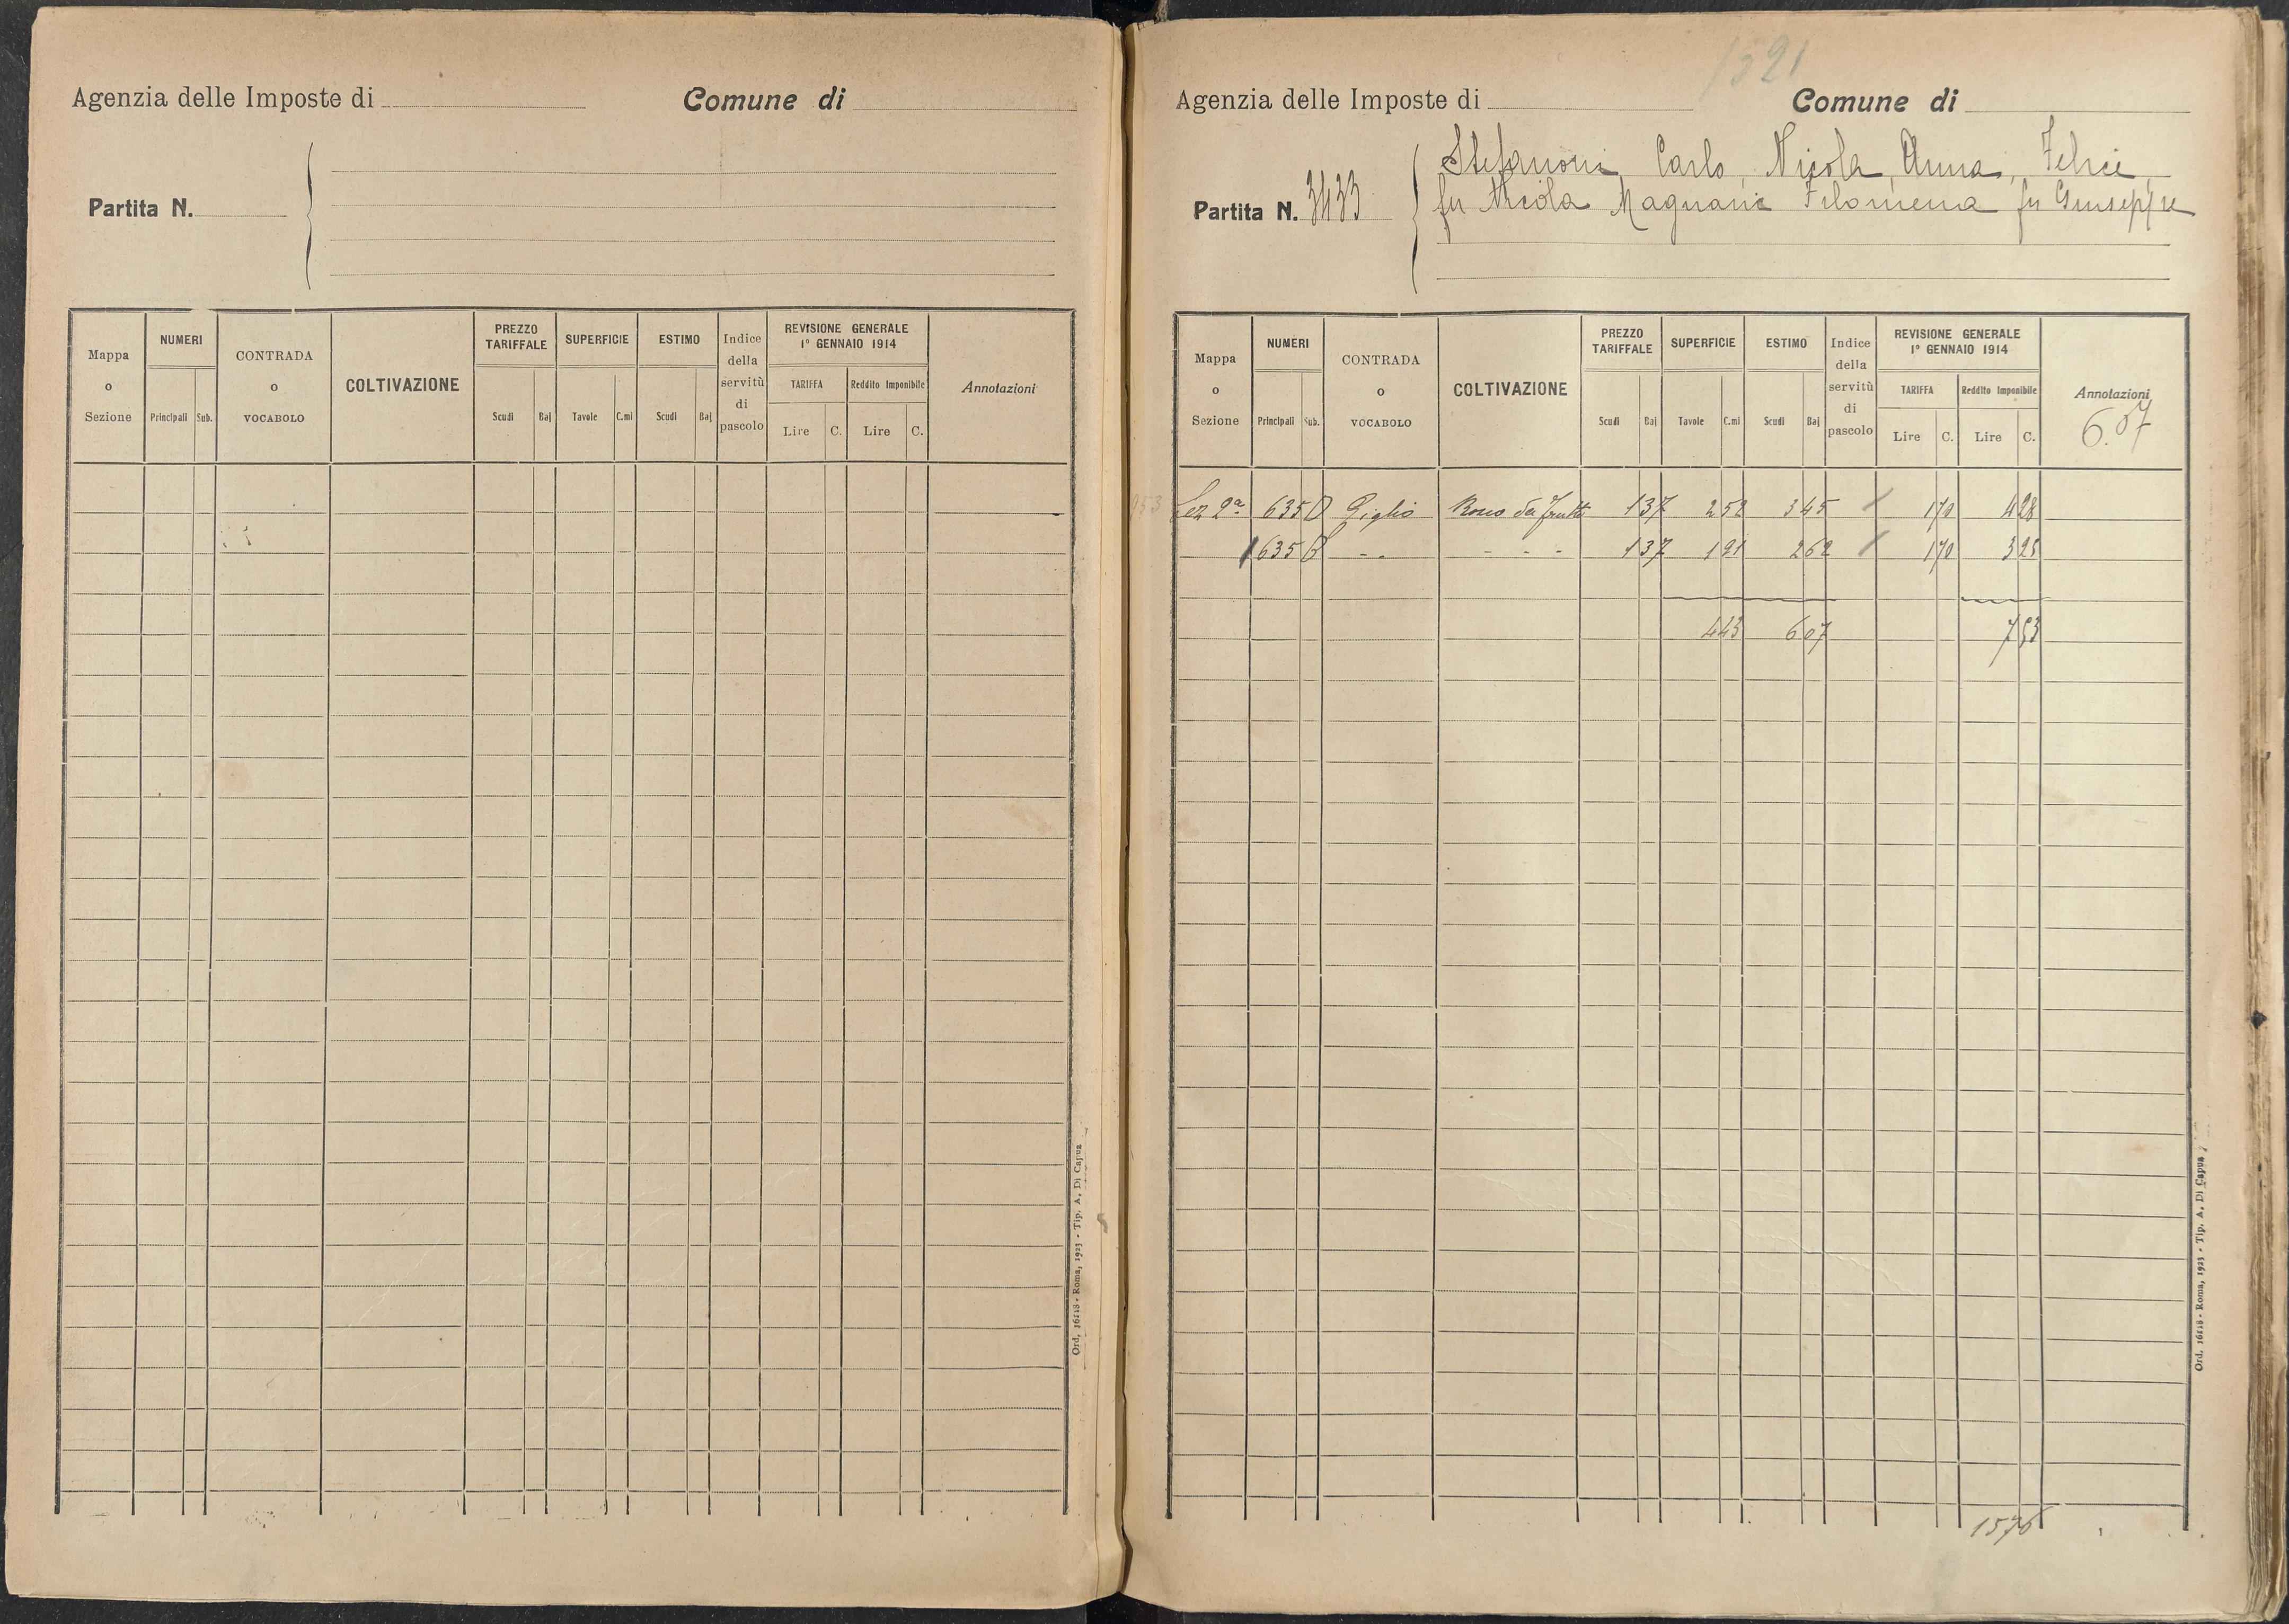 Agenzia delle Imposte di
Comune di
Partita N.
Mappa o Sezione
NUMERI
Principali
Sub.
CONTRADA o VOCABOLO
COLTIVAZIONE
PREZZO TARIFFALE
Scudi
Baj
SUPERFICIE
Tavole
C.mi
ESTIMO
Scudi
Baj
Indice della servitù di pascolo
REVISIONE GENERALE
1° GENNAIO 1914
TARIFFA
Lire
C.
Reddito Imponibile
Lire
C.
Annotazioni
Ord. 16118 - Roma, 1923 - Tip. A. Di Capua
1521
Agenzia delle Imposte di
Comune di
Partita N. 3433
Stefanoni Carlo, Nicola, Anna, Felice
fu Nicola Magnani Filomena fu Giuseppe
Mappa o Sezione
NUMERI
Principali
Sub.
CONTRADA o VOCABOLO
COLTIVAZIONE
PREZZO TARIFFALE
Scudi
Baj
SUPERFICIE
Tavole
C.mi
ESTIMO
Scudi
Baj
Indice della servitù di pascolo
REVISIONE GENERALE
1° GENNAIO 1914
TARIFFA
Lire
C.
Reddito Imponibile
Lire
C.
Annotazioni
6.07
Sez 2ª 635 D Giglio da frutto 137 252 345 170 428
635 B - - - - - 137 191 262 170 325
443 607 753
1576
Ord. 16118 - Roma, 1923 - Tip. A. Di Capua